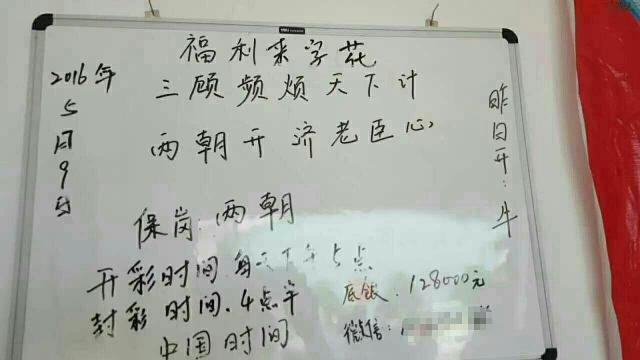 福利来字花
2016年5月9日
三顾频烦天下计
两朝开济老臣心
昨日开：牛
保岗：两朝
开彩时间每天下午5点
封彩时间.4点半
中国时间
底钱.128000元
微信：